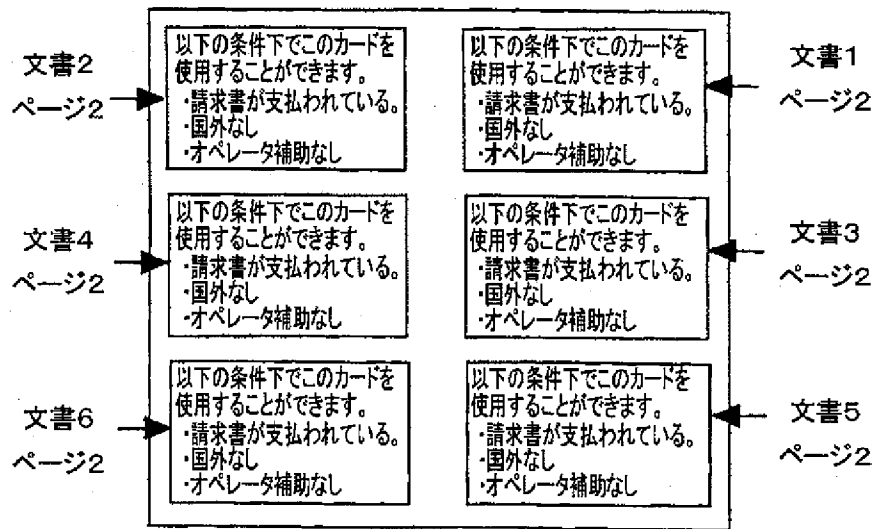 文書2
ページ2
以下の条件下でこのカードを
使用することができます。
・請求書が支払われている。
・国外なし
・オペレータ補助なし
以下の条件下でこのカードを
使用することができます。
・請求書が支払われている。
・国外なし
・オペレータ補助なし
文書1
ページ2
文書4
ページ2
以下の条件下でこのカードを
使用することができます。
・請求書が支払われている。
・国外なし
・オペレータ補助なし
以下の条件下でこのカードを
使用することができます。
・請求書が支払われている。
・国外なし
・オペレータ補助なし
文書3
ページ2
文書6
ページ2
以下の条件下でこのカードを
使用することができます。
・請求書が支払われている。
・国外なし
・オペレータ補助なし
以下の条件下でこのカードを
使用することができます。
・請求書が支払われている。
・国外なし
・オペレータ補助なし
文書5
ページ2